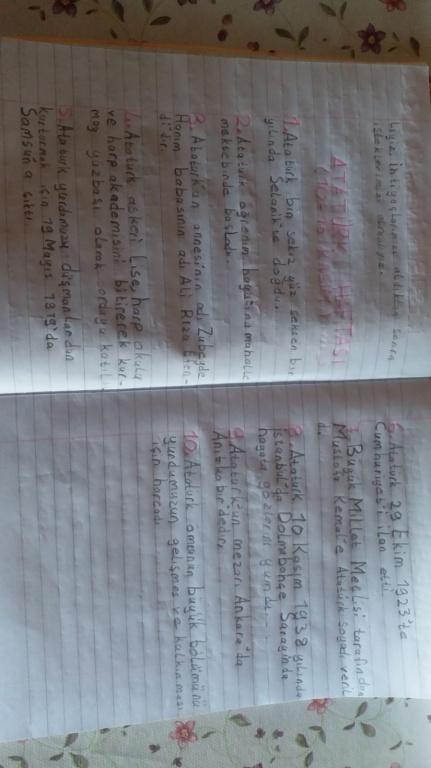 aldıktan sonra
ATATÜRK HAFTASI
1. Atatürk bin sekiz yüz seksen bir
yılında Selanik'te doğdu.
2. Atatürk öğrenim hayatına mahalle
mektebinde başladı.
3. Atatürk'ün annesinin adı Zübeyde
Hanım babasının adı Ali Rıza Efen-
di'dir.
4. Atatürk askeri Lise, harp okulu
ve harp akademisini bitirerek kur-
may yüzbaşı olarak orduya katıl
5. Atatürk yurdumuzu düşmanlardan
kurtarmak için 19 Mayıs 1919'da
Samsun'a çıktı.
6. Atatürk 29 Ekim 1923'te
Cumhuriyet'i ilan etti
7. Büyük Millet Meclisi tarafından
Mustafa Kemal'e Atatürk soyadı veril
di
8. Atatürk 10 Kasım 1938 yılında
istanbul'da Dolmabahçe Sarayında
hayata gözlerini yumdu.
9. Atatürk'ün mezarı Ankara'da
Anıtkabir'dedir.
10. Atatürk ömrünün büyük bölümünü
yurdumuzun gelişmesi ve kalkınması
için harcadı